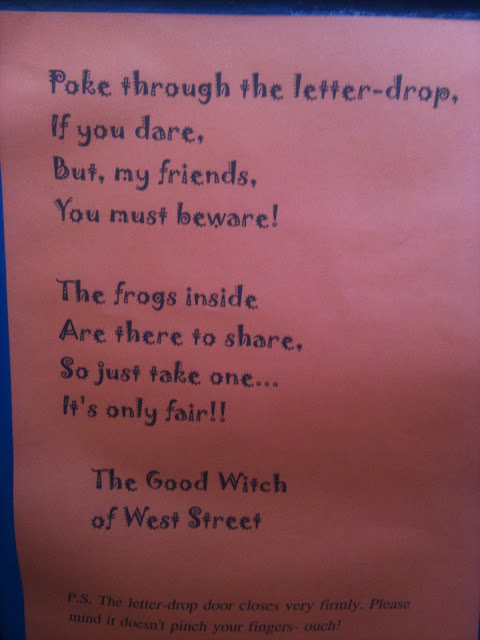 Poke through the letter-drop,
If you dare,
But, my friends,
You must beware!
The frogs inside
Are there to share,
So just take one...
It's only fair!!
The Good Witch
of West Street
P.S. The letter-drop door closes very firmly. Please
mind it doesn't pinch your fingers- ouch!